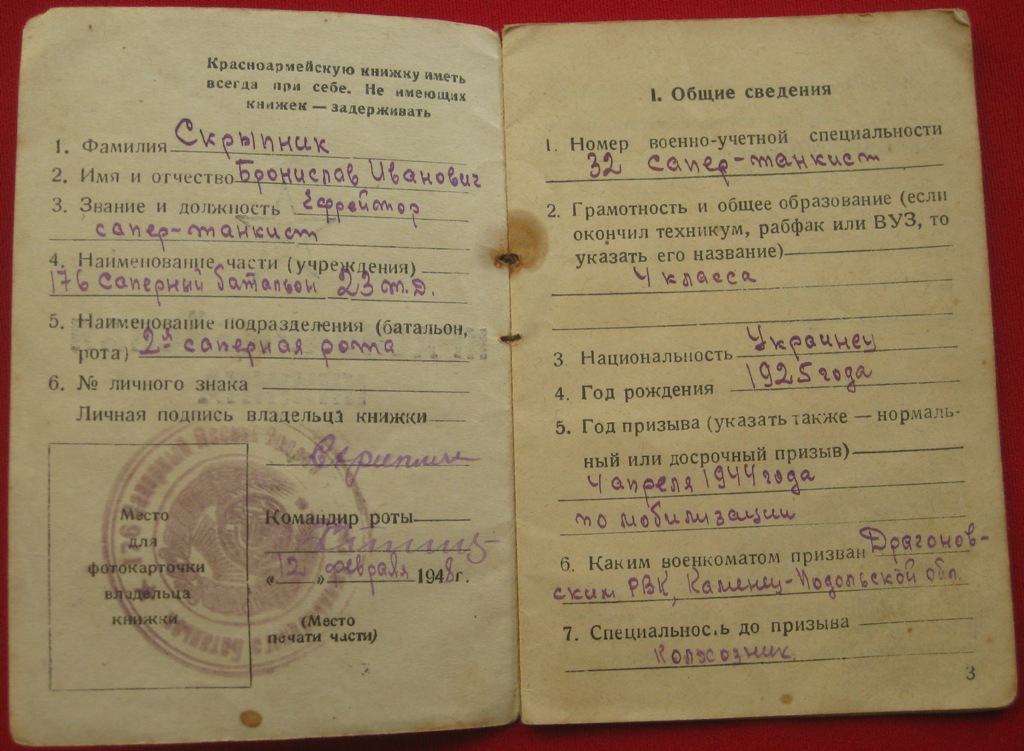 Красноармейскую книжку иметь
всегда при себе. Не имеющих
книжек — задерживать
1. Фамилия Скрыпник
2. Имя и отчество Бронислав Иванович
3. Звание и должность Ефрейтор
сапер-танкист
4. Наименование части (учреждения)
176 Саперный батальон 23 т.д.
5. Наименование подразделения (батальон,
рота) 2я саперная рота
6. № личного знака
Личная подпись владельца книжки
Место
для
фотокарточки
владельца
книжки
Командир роты
«12» февраля 1948 г.
(Место
печати части)
I. Общие сведения
1. Номер военно-учетной специальности
32 сапер-танкист
2. Грамотность и общее образование (если
окончил техникум, рабфак или ВУЗ, то
указать его название)
4 класса
3 Национальность Украинец
4. Год рождения 1925 года
5. Год призыва (указать также — нормаль-
ный или досрочный призыв)
4 апреля 1944 года
по мобилизации
6. Каким военкоматом призван Драгонов-
ским РВК, Каменец-Подольской обл.
7. Специальность до призыва
Колхозник.
3